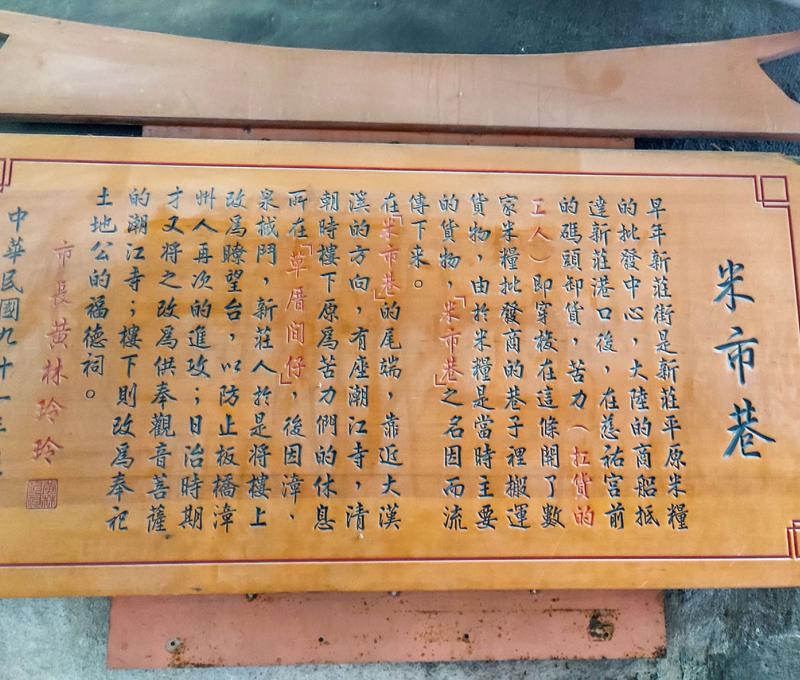 米市巷
早年新莊街是新莊平原米糧
的批發中心，大陸的商船抵
達新莊港口後，在慈祐宮前
的碼頭卸貨，苦力（扛貨的
工人）即穿梭在這條開了數
家米糧批發商的巷子裡搬運
貨物，由於米糧是當時主要
的貨物，「米市巷」之名因而流
傳下來。
在「米市巷」的尾端，靠近大漢
溪的方向，有座潮江寺，清
朝時樓下原為苦力們的休息
所在「草厝間仔」，後因漳、
泉械鬥，新莊人於是將樓上
改為瞭望台，以防止板橋漳
州人再次的進攻；日治時期
才又將之改為供奉觀音菩薩
的潮江寺；樓下則改為奉祀
土地公的福德祠。
市長黃林玲玲
中華民國九十一年